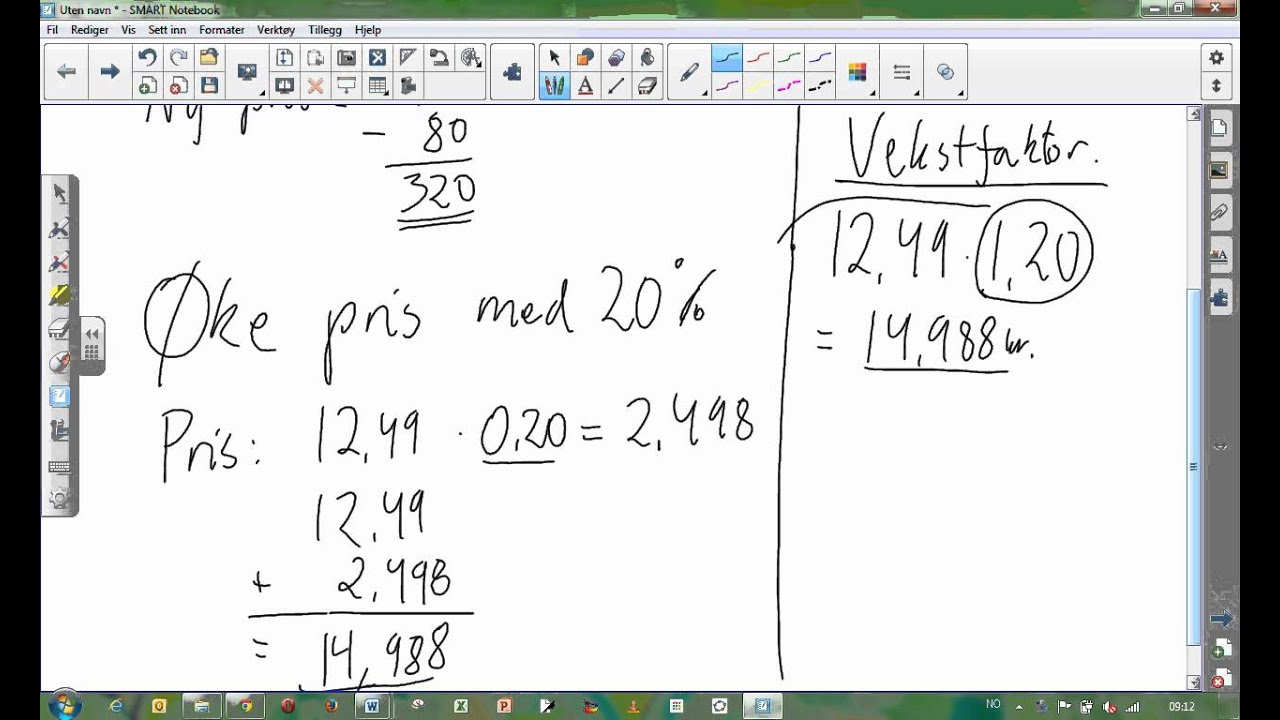 Uten navn * - SMART Notebook
Fil Rediger Vis Sett inn Formater Verktøy Tillegg Hjelp
- 80
320
Øke pris med 20%
Pris: 12,49 · 0,20 = 2,498
12,49
+ 2,498
= 14,988
Vekstfaktor.
12,49 · 1,20
= 14,988 kr.
NO 09:12